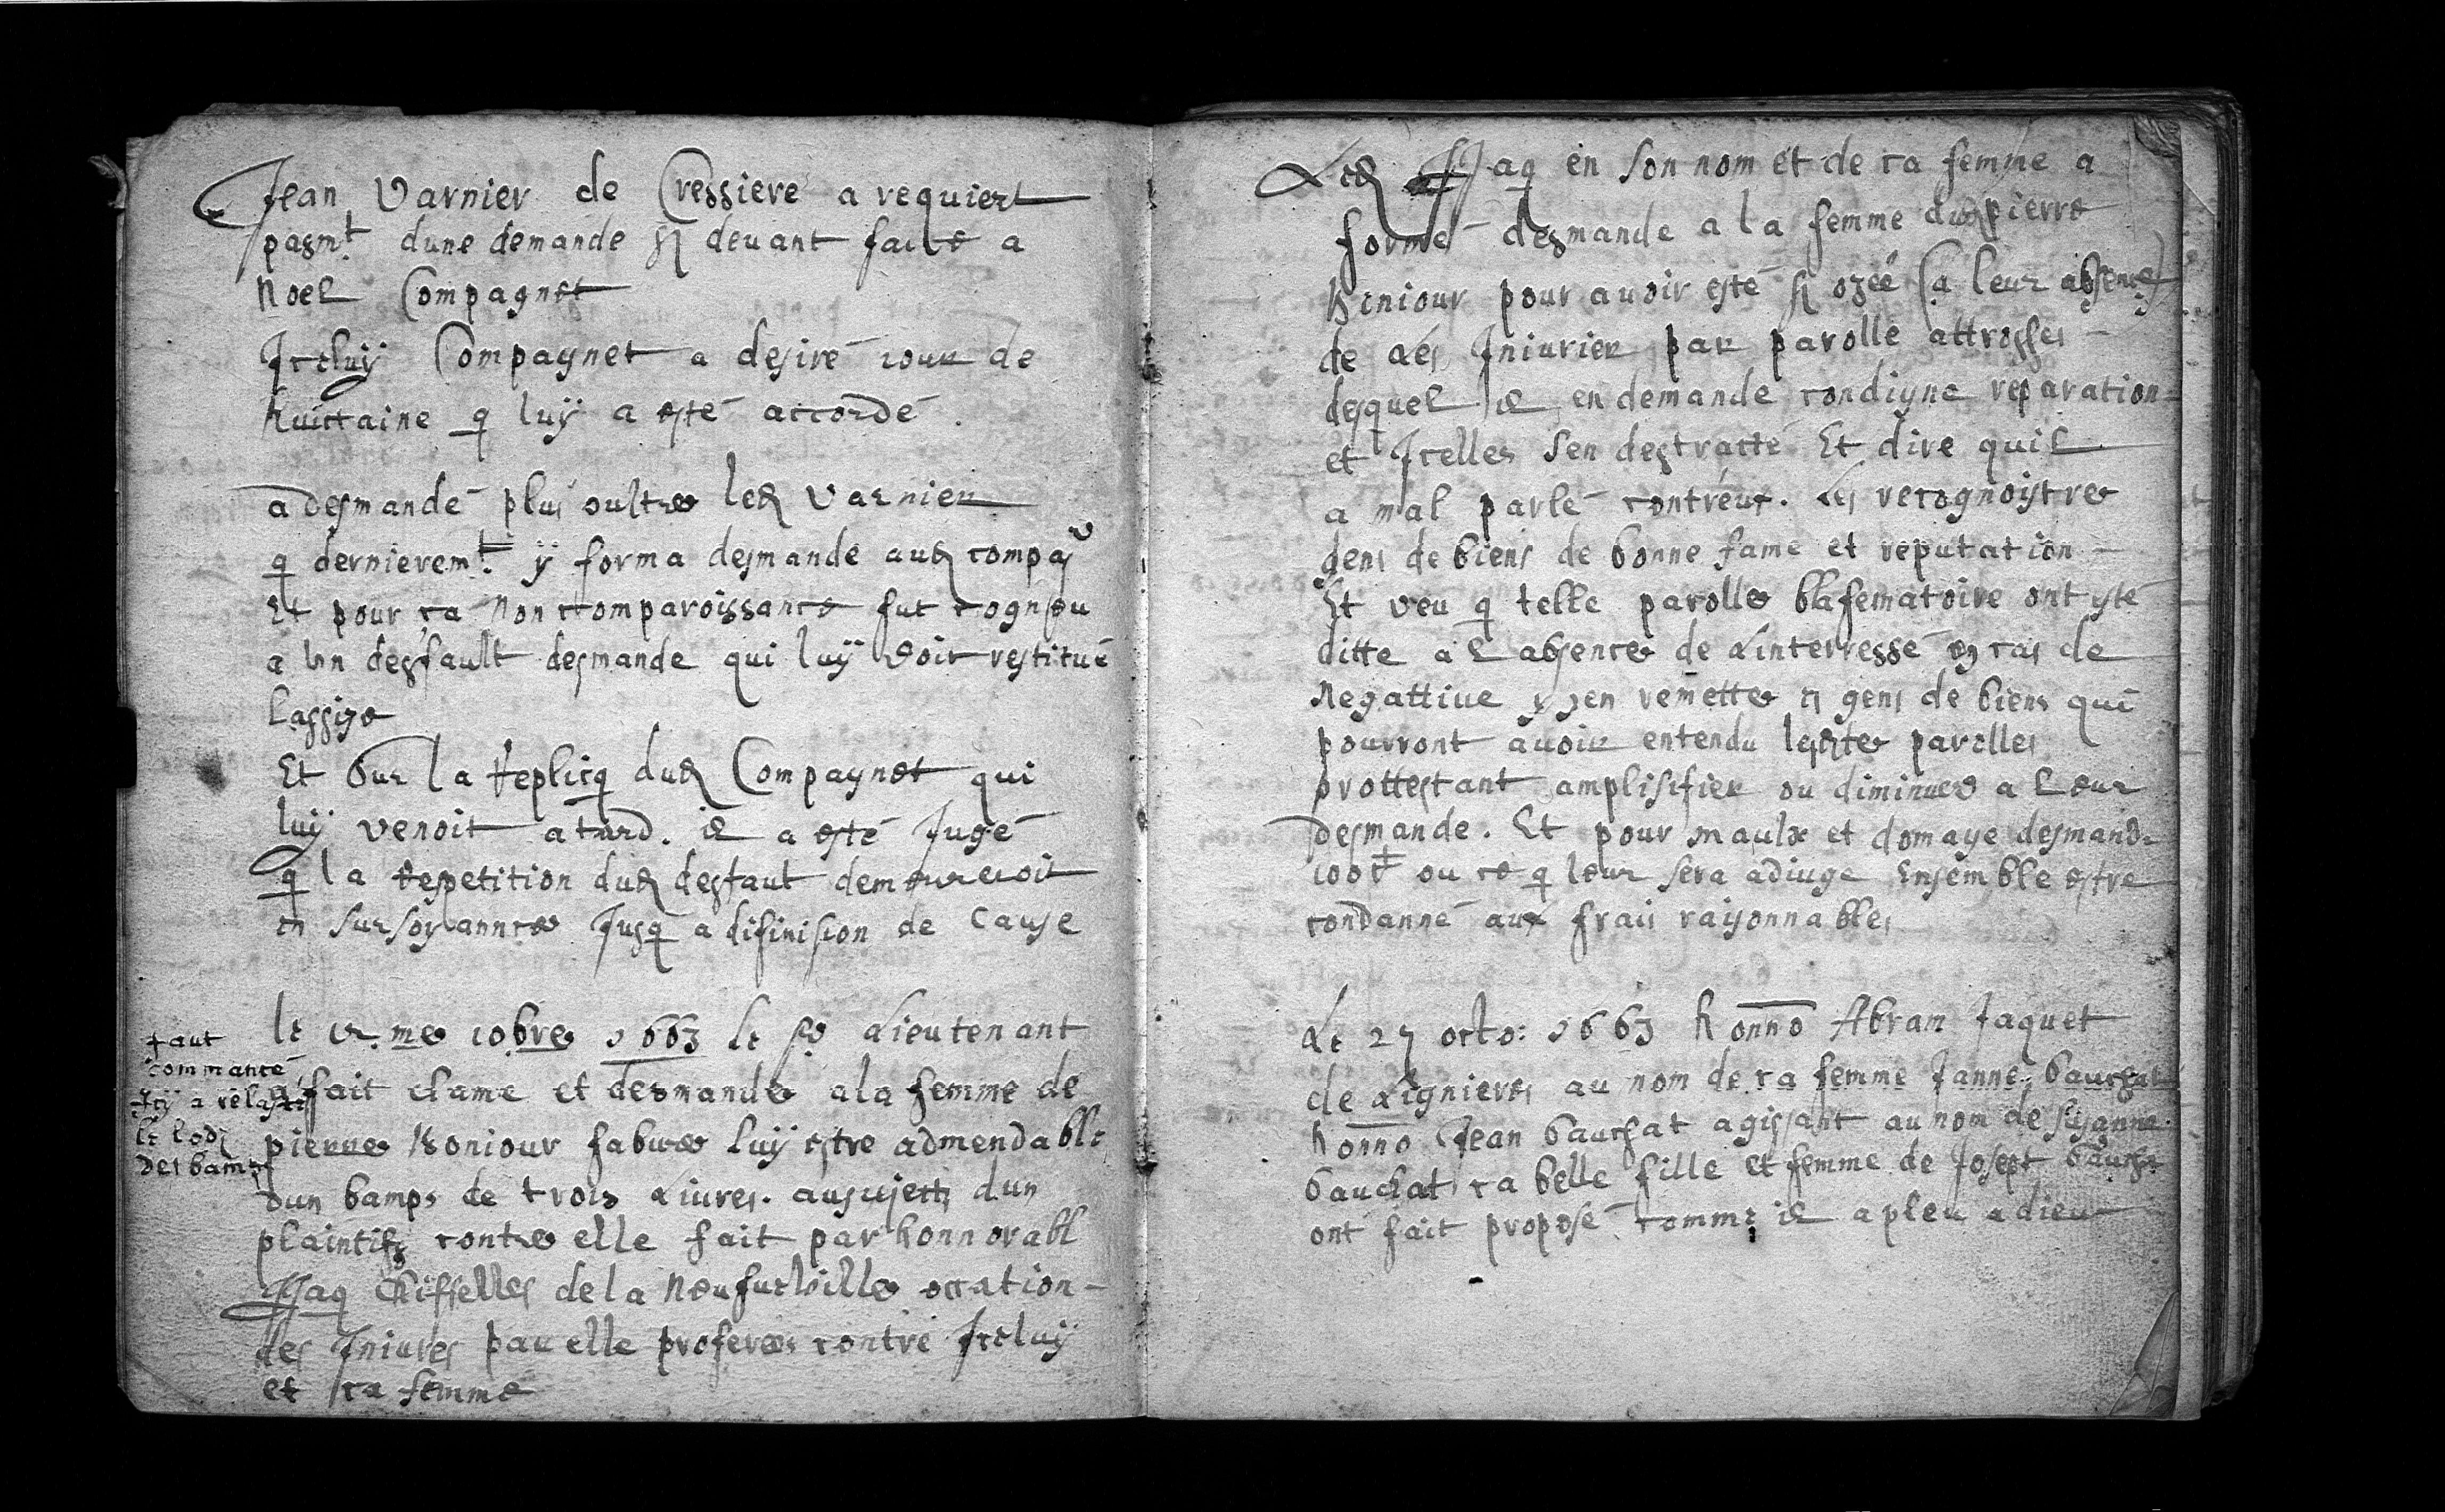 Jean Varnier de Cressiere a requiert
pasmt. dune demande cy devant faite a
Noel Compagnet
Iceluÿ Compagnet a desiré iour de
huictaine q luÿ a esté accordé.
a desmandé plus oultre led Varnier
q dernieremt. ÿ forma desmande aud compag
Et pour ca Non comparoissance fut cognou
a un desfault desmande qui luÿ soit restitué
Lassise
Et sur la replicq dud Compagnet qui
luÿ venoit a tard. il a esté Jugé
q la repetition dud desfaut demoureroit
en sursoyannce Jusq a difinision de cause
le me 10bre 1663 le Sr Lieutenant
a fait clame et desmande a la femme de
pierre Boniour luÿ estre admendable
dun bamps de trois Livres. au sujects dun
plaintifz contre elle fait par honnorabl
Isaq Chiffelles de la Neufveville occation-
des Iniures par elle proferees contre Iceluÿ
et ca femme
faut
commancé
Icÿ a
le lod
des bamps
Led Isaq en son nom et de ca femme a
formé desmande a la femme dud pierre
Boniour pour avoir esté sy ozéé (a leur absence)
de les Iniurier par parolle attrosses
desquel il en demande condigne reparation
et Icelles sen destracte Et dire quil
a mal parlé contréux. Les recognoistre
gens de biens de bonne fame et reputation
Et veu q telle parolle blafematoire ont esté
ditte a l absence de Linterressé en cas de
Negattive sen remette es gens de biens qui
pourront avoir entendu lesdte parolles
prottestant amplisifier ou diminuer a leur
desmande. Et pour maulx et domage desmande
100 ou ce q leur sera adiuge Ensemble estre
condanné aux frais raisonnables
Le 27 octo: 1663 honno Abram Jaquet
de Lignieres au nom de ca femme Janne Bauchat
honno Jean Bauchat agissant au nom de Susanne
Bauchat ca belle fille et femme de Josept Bauchat
ont fait proposé comme il a pleu a dieu